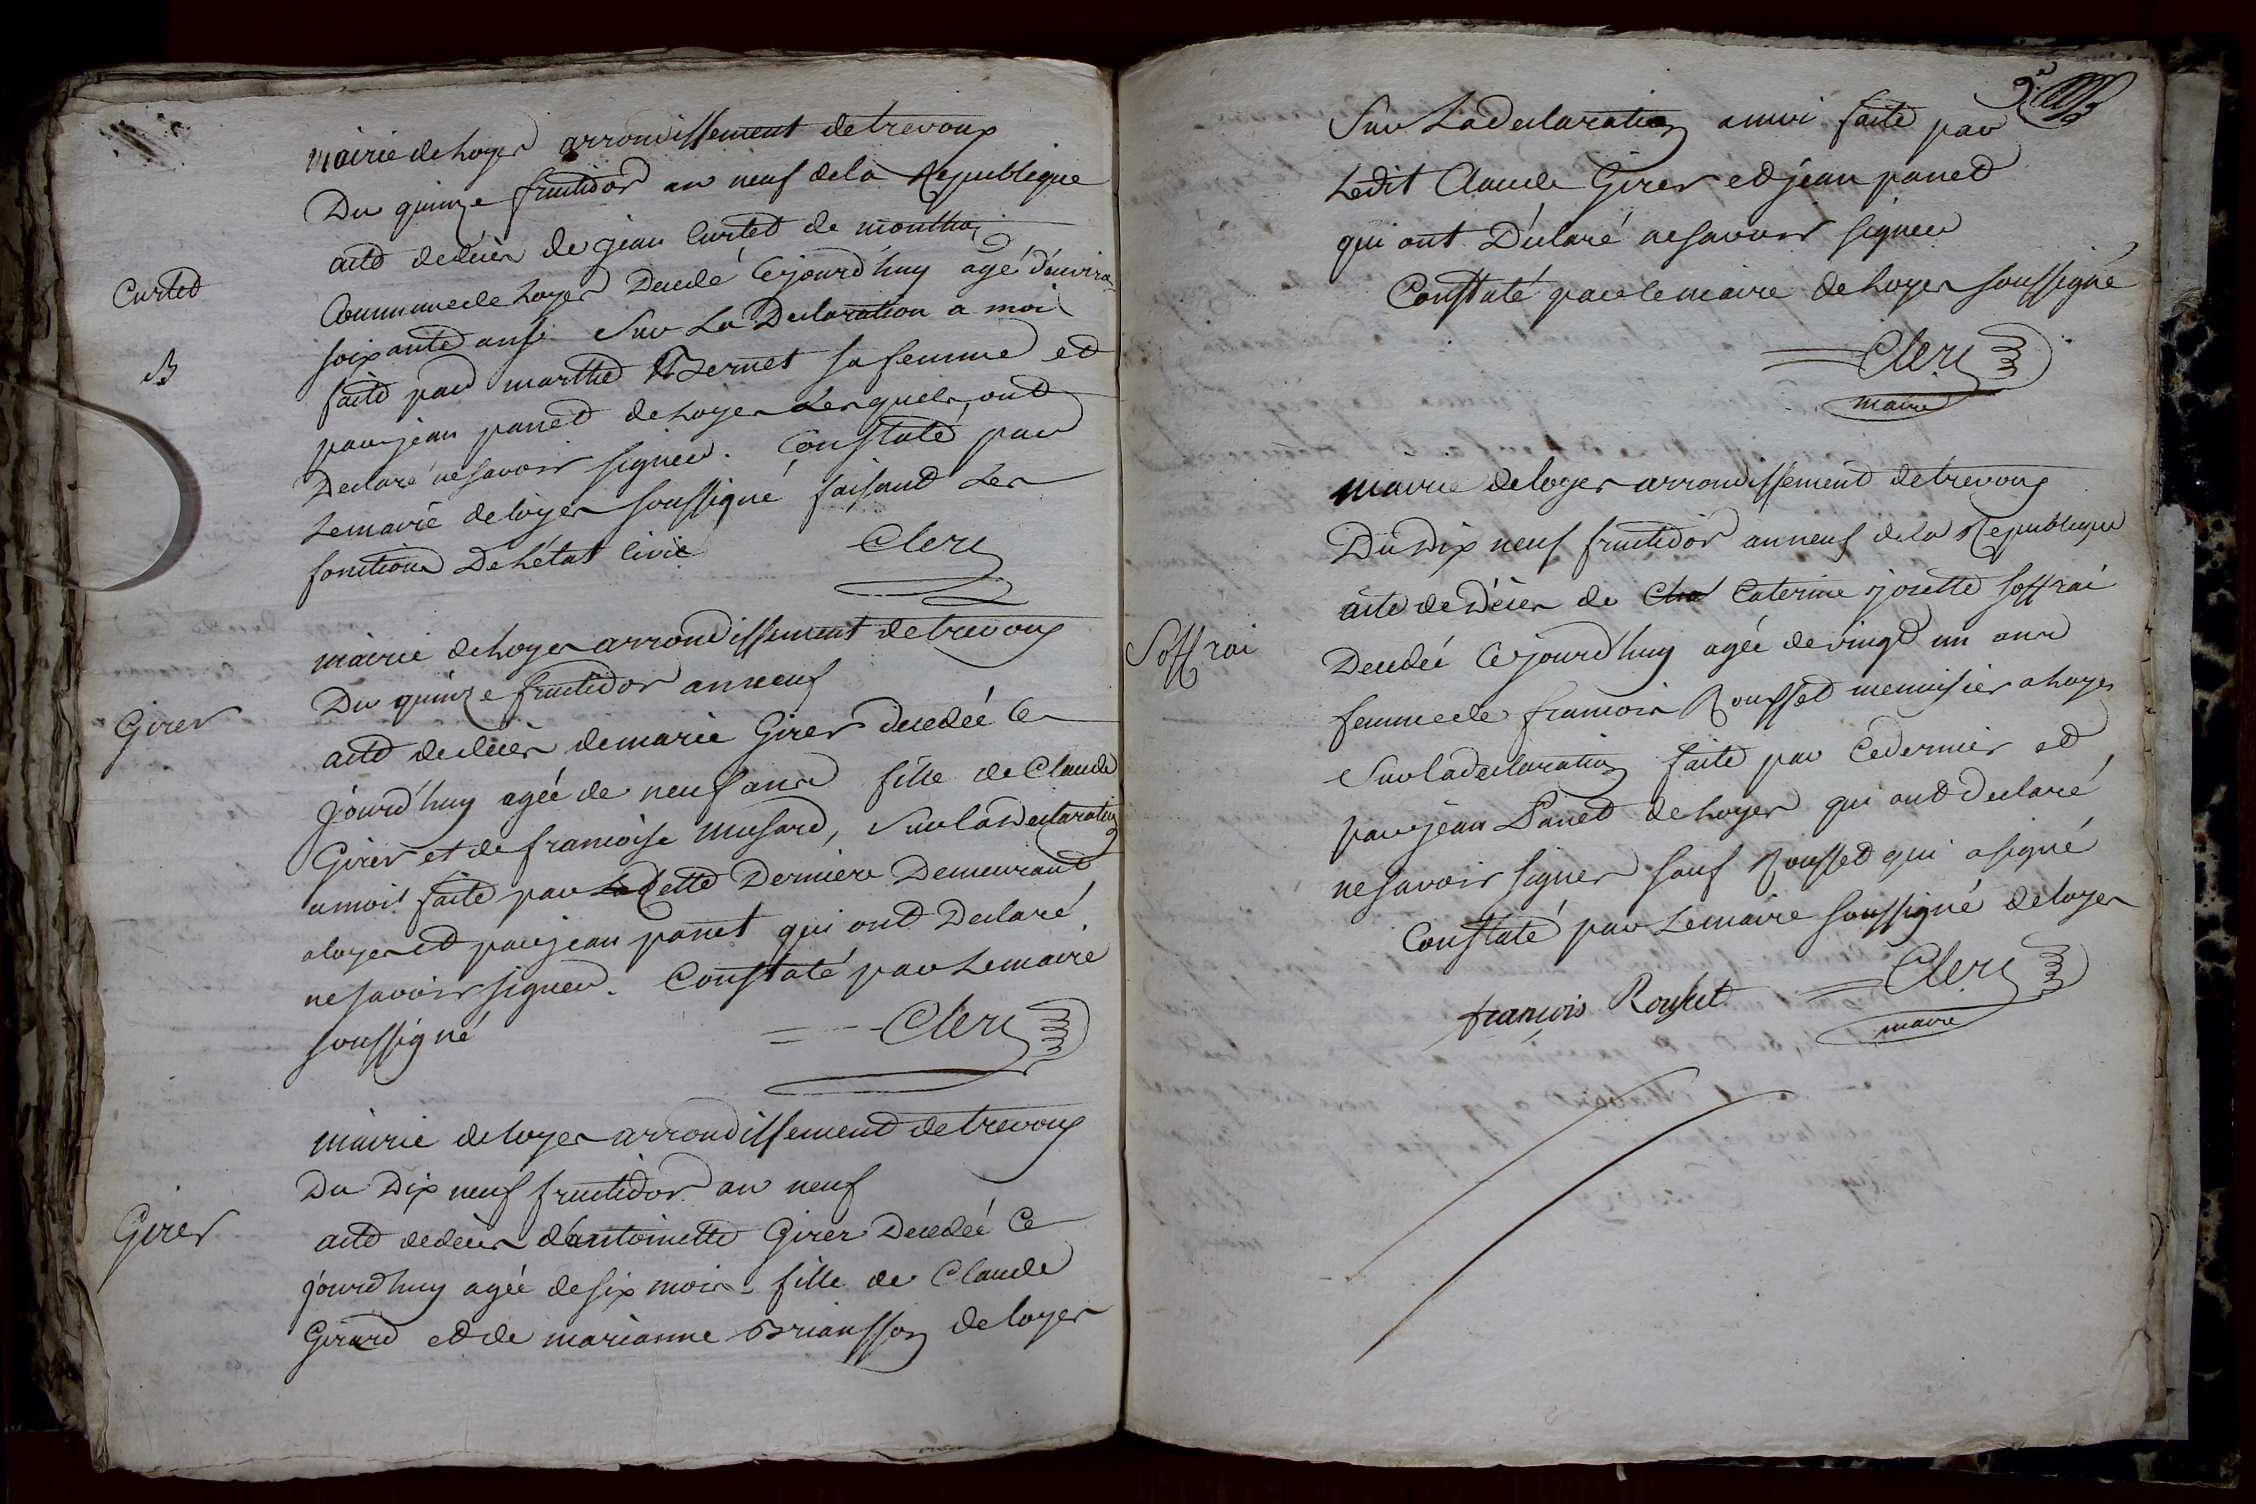 mairie de Loyes arrondissement de trevoux
Du quinze fructidor an neuf de la Republique
acte de decès de jean Curtet de monthoz
Curtet
Commune de Loyes Decedé Cejourd'huy agé d'environ
soixante ans Sur La Declaration a moi
B
faite par marthe Bernet sa femme et
par jean panet de Loyes Lesquels ont
Declaré ne savoir signer. Constaté par
Le maire de loyes soussigné faisant Les
fonctions De L'état Civil
Clerc
mairie de Loyes arrondissement de trevoux
Du quinze fructidor an neuf
Girer
acte de decès de marie Girer decedée Ce
jourd'huy agée de neuf ans fille de Claude
Girer et de francoise Musard, Sur la Declaration
a moi faite par La Cette Derniere Demeurant
a loyes et par jean panet qui ont Declaré
ne savoir signer. Constaté par Le maire
soussigné
Clerc
mairie de loyes arrondissement de trevoux
Du Dix neuf fructidor an neuf
Girer
acte de decès d'antoinette Girer Decedée Ce
jourd'huy agée de six mois fille de Claude
Girard et de marianne Briansson de loyes
9e
Sur La declaration a moi faite par
Ledit Claude Girer et jean panet
qui ont Déclaré ne savoir signer
Constaté par le maire de Loyes soussigné
Clerc
maire
mairie de loyes arrondissement de trevoux
Du Dix neuf fructidor an neuf de la Republique
acte de Décès de Cha Caterine josette Soffrai
Soffrai
Decedée Cejourd'huy agée de vingt un ans
femme de francois Rousset menuisier a Loyes
Sur la declaration faite par Ce dernier et
par jean Panet de Loyes qui ont declaré
ne savoir signer sauf Rousset qui a signé
Constaté par Le maire soussigné de loyes
françois Rousset
Clerc
maire